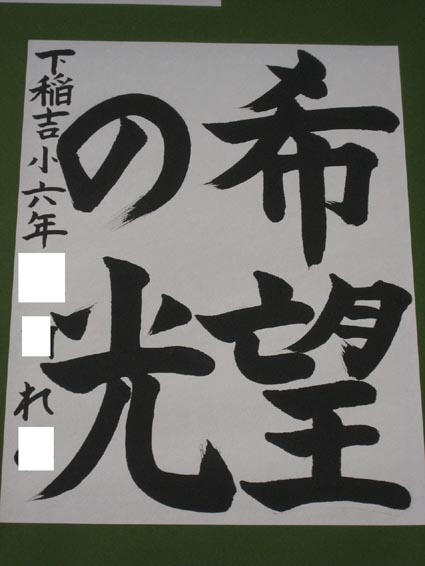 希望
の光
下稲吉小六年
れ